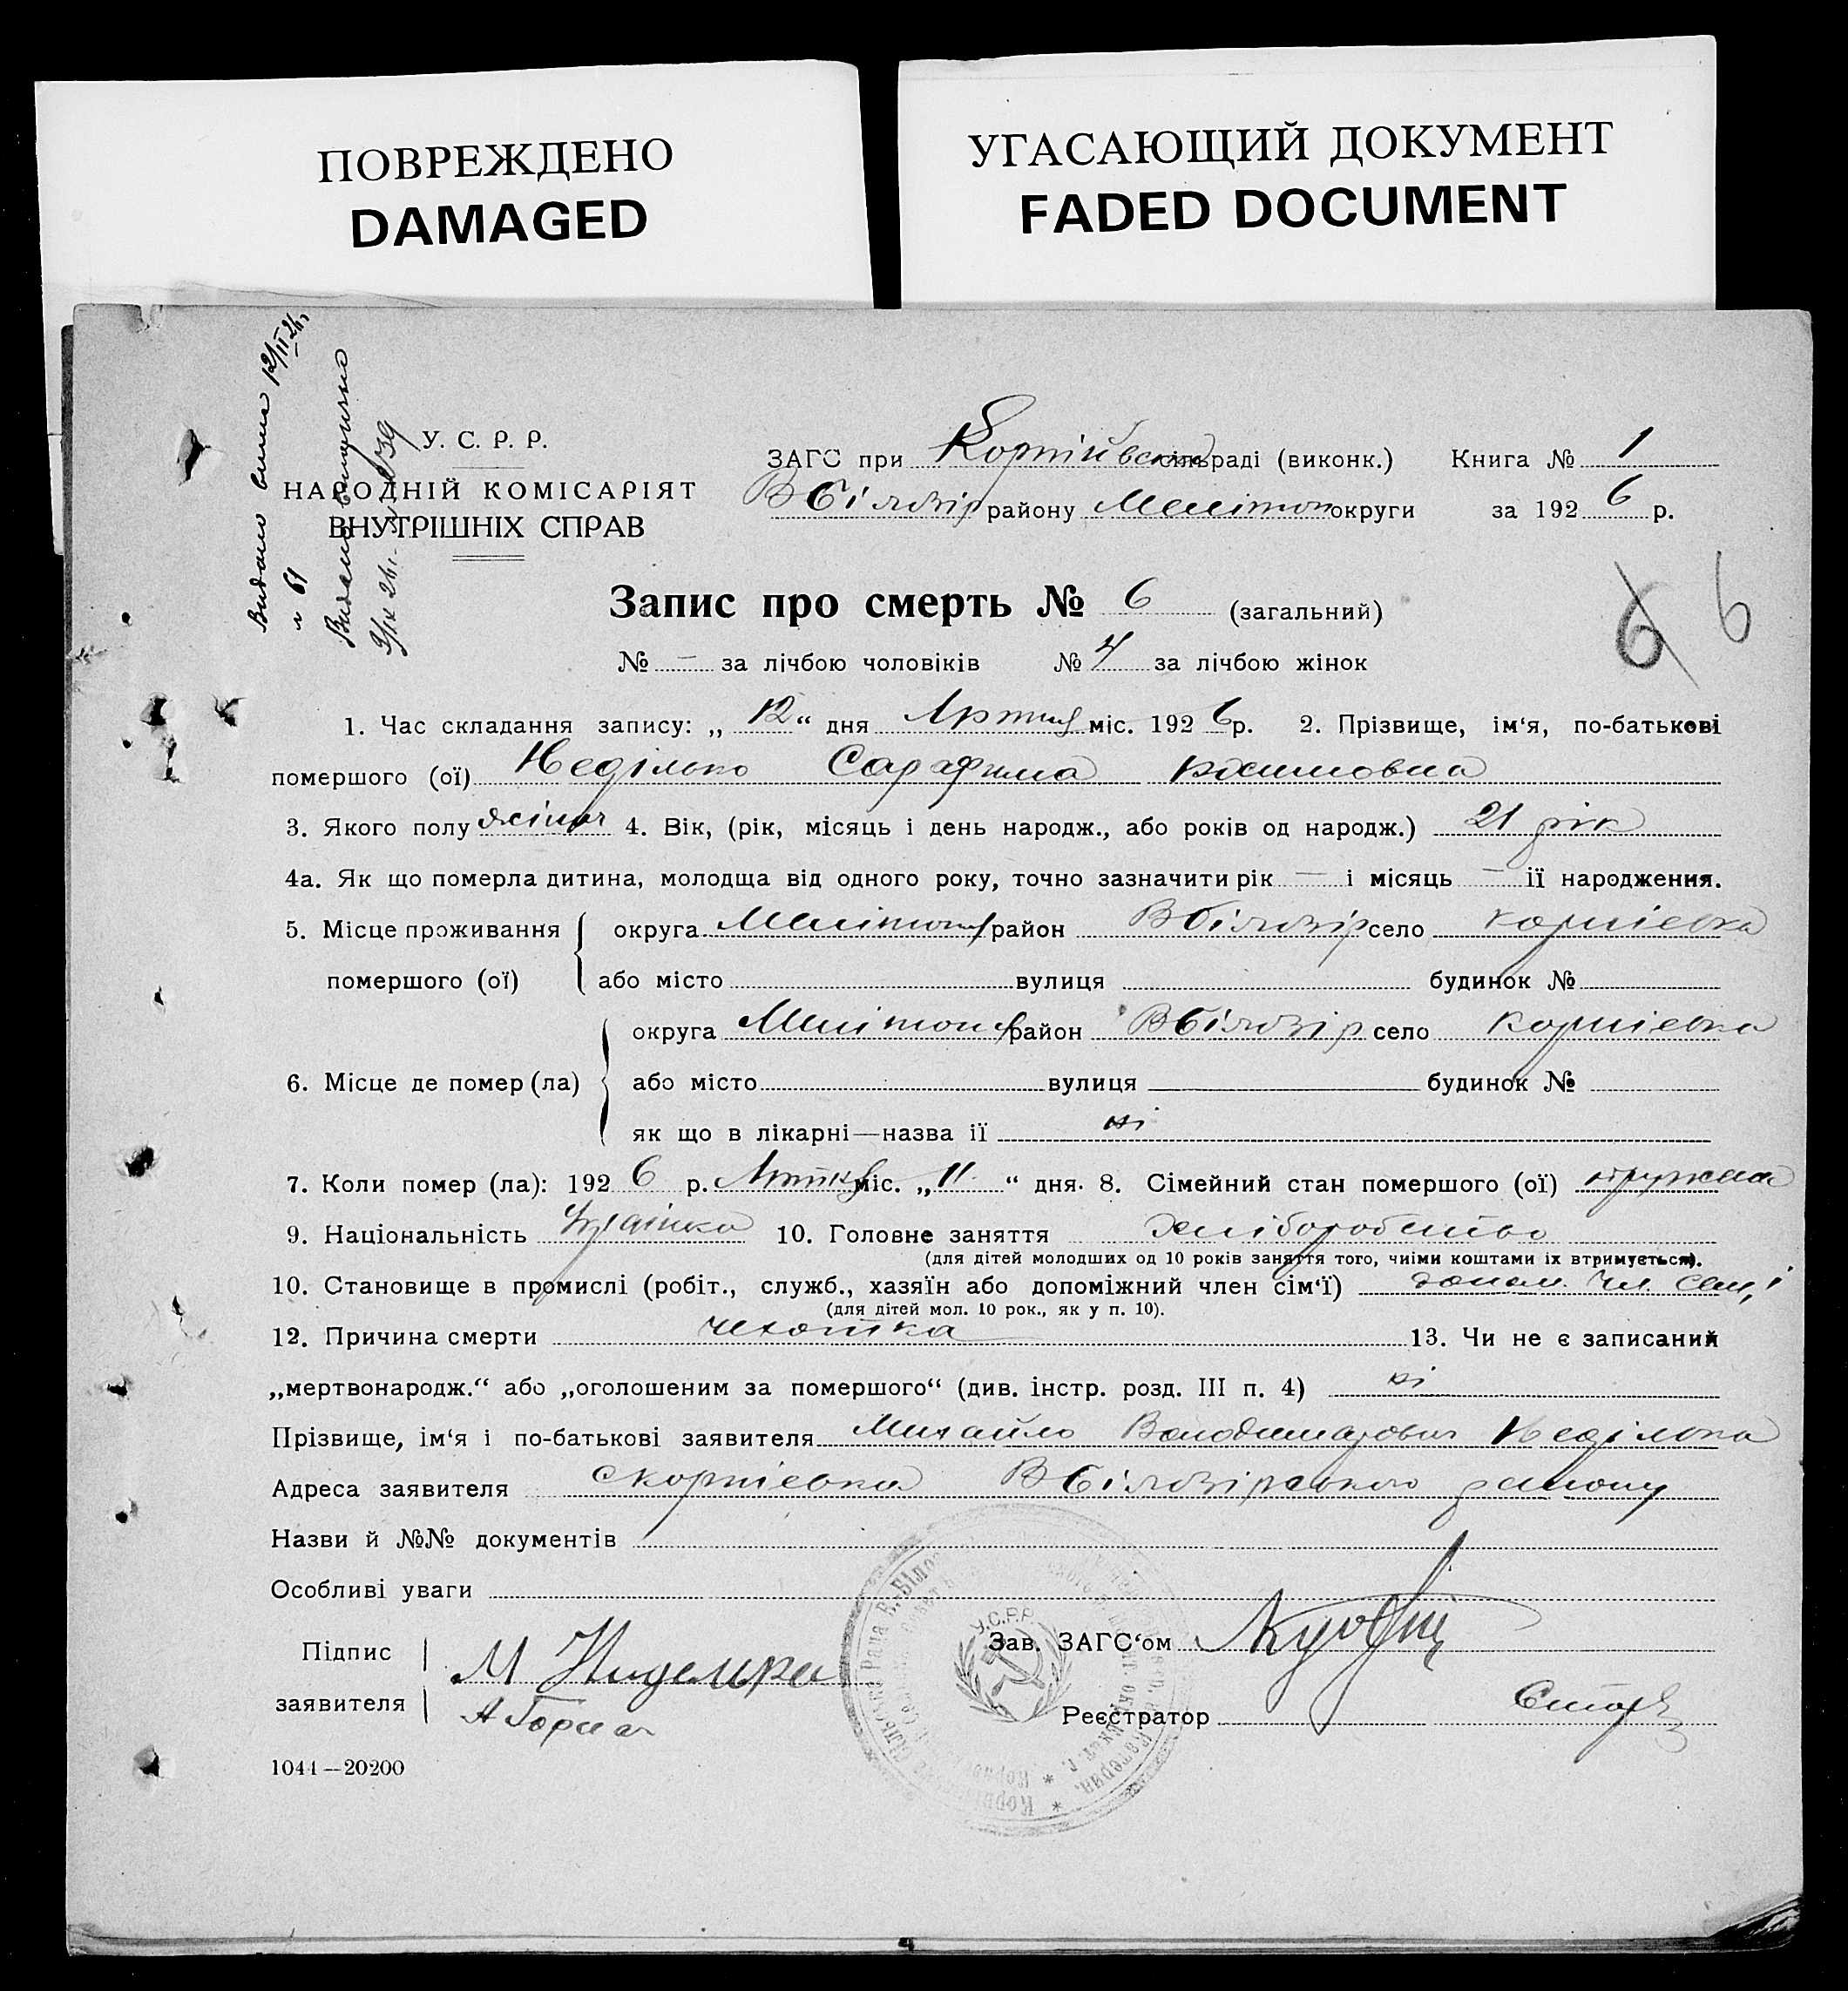 ПОВРЕЖДЕНО
DAMAGED
УГАСАЮЩИЙ ДОКУМЕНТ
FADED DOCUMENT
Видано 12/II 26 р
№ 61
Видано
У. С. Р. Р.
НАРОДНІЙ КОМІСАРІЯТ
ВНУТРІШНІХ СПРАВ
ЗАГС при Корніївській сільраді (виконк.) Книга № 1
В Білозір району Меліто округи за 192 6 р.
Запис про смерть № 6 (загальний)
6 6
№ — за лічбою чоловіків № 4 за лічбою жінок
1. Час складання запису: „ 12 “ дня міс. 192 6 р. 2. Прізвище, ім‘я, по-батькові
помершого (ої) Неділько Сарафима
3. Якого полу жіноч 4. Вік, (рік, місяць і день народж., або років од народж.) 21 рік
4а. Як що померла дитина, молодща від одного року, точно зазначити рік — і місяць — її народження.
5. Місце проживання округа Мелітоп район В Білозір село Корніевка
помершого (ої) або місто вулиця будинок №
округа Мелітоп район В Білозір село Корніевка
6. Місце де помер (ла) або місто вулиця будинок №
як що в лікарні—назва її ні
7. Коли помер (ла): 192 6 р. міс. „ 11 “ дня. 8. Сімейний стан помершого (ої)
9. Національність Українка 10. Головне заняття хліборобство
(для дітей молодших од 10 років заняття того, чиїми коштами їх втримується).
10. Становище в промислі (робіт., служб., хазяїн або допоміжний член сім‘ї) допом. чл. сем,ї
(для дітей мол. 10 рок., як у п. 10).
12. Причина смерти чехотка 13. Чи не є записаний
„мертвонародж.“ або „оголошеним за помершого“ (див. інстр. розд. III п. 4) ні
Прізвище, ім‘я і по-батькові заявителя Михайло Володимирович Неділько
Адреса заявителя с Корніевка В Білозірського району
Назви й №№ документів
Особливі уваги
Підпис
заявителя
М Нидельк
Зав. ЗАГС‘ом
Реєстратор
У.С.Р.Р.
1041—20200